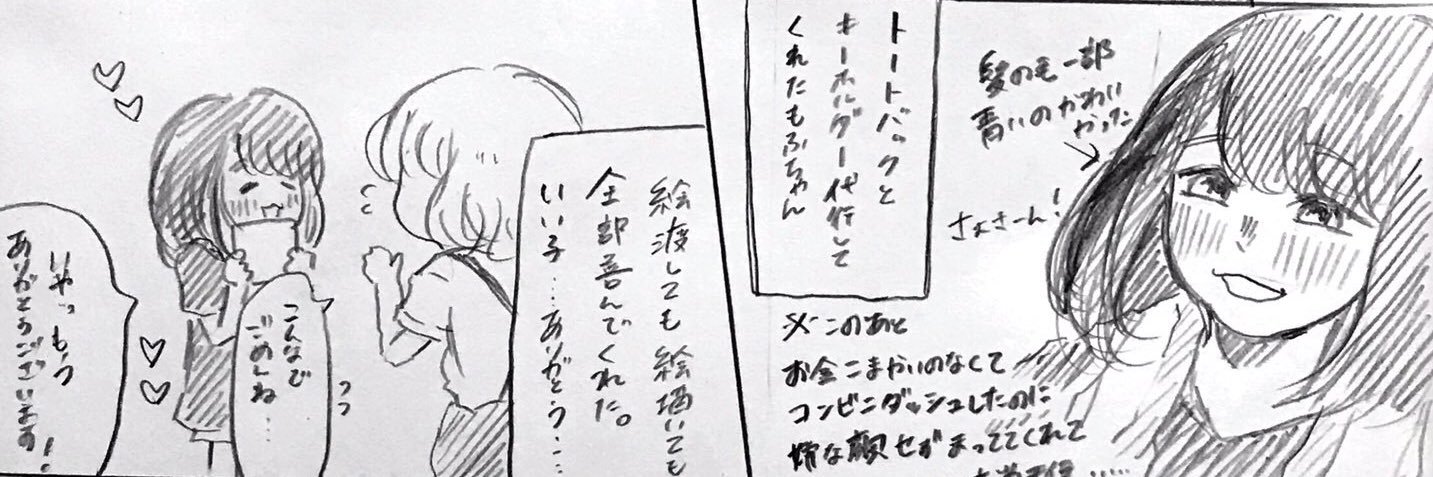 トートバックと
キーホルダー代行して
くれたもふちゃん
髪の毛一部
青いのかわい
かった
さよさーん!
※このあと
お金こまかいのなくて
コンビニダッシュしたのに
嫌な顔せずまっててくれて
絵渡しても絵描いても
全部喜んでくれた。
いい子……ありがとう……
こんなで
ごめんね……
いやっもう
ありがとうございます!